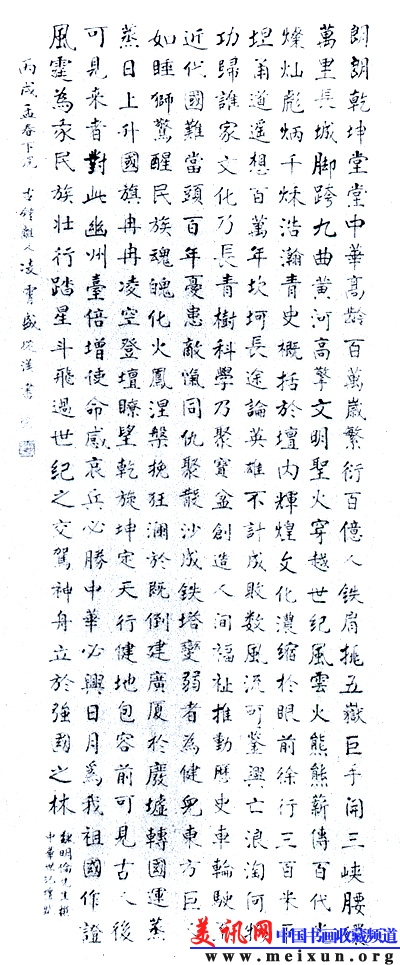 朗朗乾坤堂堂中華髙龄百萬歲繁衍百億人鉄肩挑五嶽巨手開三峽腰
萬里長城脚跨九曲黄河高擎文明聖火穿越世紀風雲火熊熊薪傳百代
燦灿彪炳千秌浩瀚青史概括於壇内輝煌文化濃縮於眼前徐行三百米
埋甬道遥想百萬年坎坷長途論英雄不計成敗数風流可鑒興亡浪淘何物
功歸誰家文化乃長青樹科學乃聚寳盆創造人间福祉推動歷史車輪駛
近代國難當頭百年憂患敵愾同仇聚散沙成鉄塔變弱者為健兒東方巨
如睡獅驚醒民族魂魄化火鳳涅槃挽狂瀾於既倒建廣厦於廢墟轉國運蒸
蒸日上升國旗冉冉凌空登壇瞭望乾旋坤定天行健地包容前可見古人後
可見来者對此幽州臺倍增使命感哀兵必勝中華必興日月爲我祖國作證
風雲為我民族壮行踏星斗飛過世紀之交駕神舟立於強國之林
魏明倫先生撰
中華世紀壇賦
丙戌孟春下浣 古鐘離人凌霄盛
美讯网
中国书画收藏频道
www.meixun.org